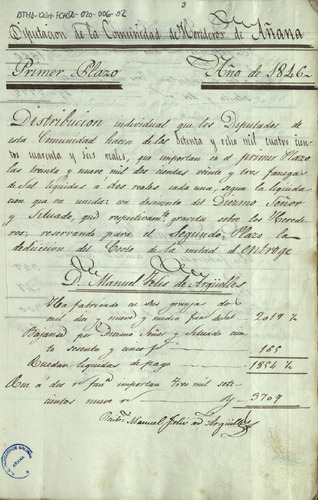 ATHA-CASH-FCASA-020-006-02
3
Diputacion de la Comunidad de Herederos de Añana
Primer Plazo Año de 1846
Distribucion individual que los Diputados de
esta Comunidad hacen de los Setenta y ocho mil, cuatro cien-
tos cuarenta y seis reales, que importan en el primer Plazo
las treinta y nueve mil dos cientas veinte y tres fanegas
de Sal liquidas a dos reales cada una, segun la liquida-
cion que va unida: con descuento del Diezmo Señor
y Situado, que respectivamte. gravita sobre los Herede-
ros; reservando para el Segundo Plazo la
deduccion del Costo de la mitad de entroge
D. Manuel Felis de Argüelles
Ha fabricado en sus granjas do
mil diez y nueve y media fans. de sal 2019 ½
Bajando por Diezmo Señor y Situado cien-
to sesenta y cinco fs. 165
Quedan liquidas de pago 1854 ½
Que a dos rs. fana. importan tres mil sete-
cientos nueve rs. 3709
Recibi Manuel Felis de Argüelles